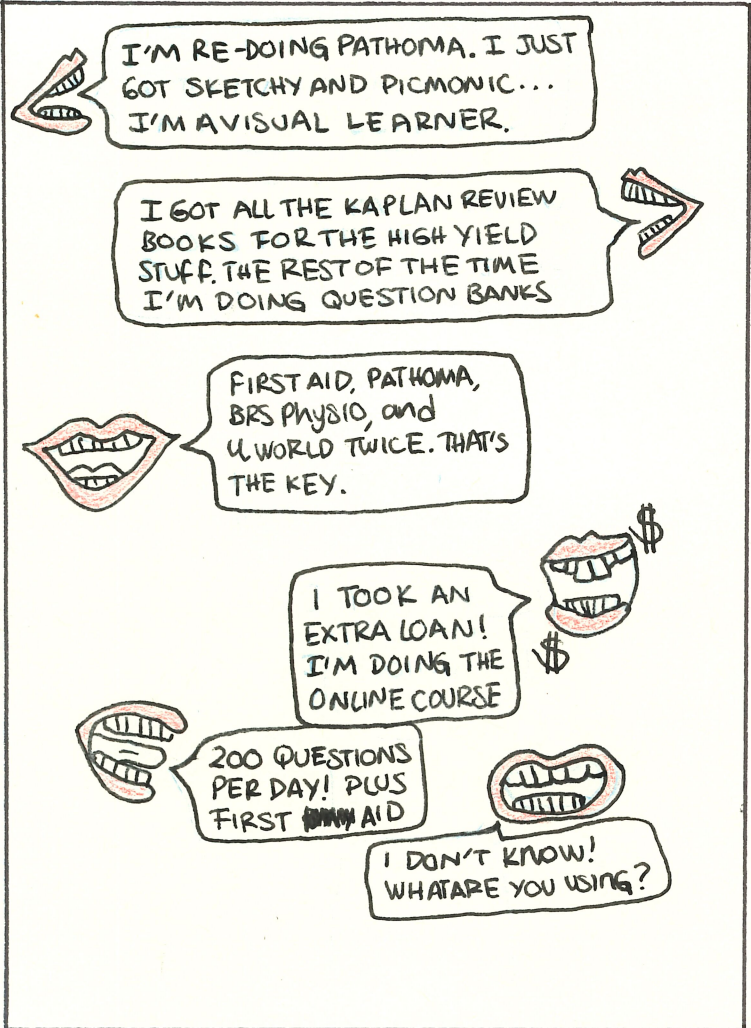 I'M RE-DOING PATHOMA. I JUST
GOT SKETCHY AND PICMONIC...
I'M A VISUAL LEARNER.
I GOT ALL THE KAPLAN REVIEW
BOOKS FOR THE HIGH YIELD
STUFF. THE REST OF THE TIME
I'M DOING QUESTION BANKS
FIRST AID, PATHOMA,
BRS PhYSIO, and
U WORLD TWICE. THAT'S
THE KEY.
$
I TOOK AN
EXTRA LOAN!
I'M DOING THE
ONLINE COURSE
$
200 QUESTIONS
PER DAY! PLUS
FIRST AID
I DON'T KNOW!
WHAT ARE YOU USING?